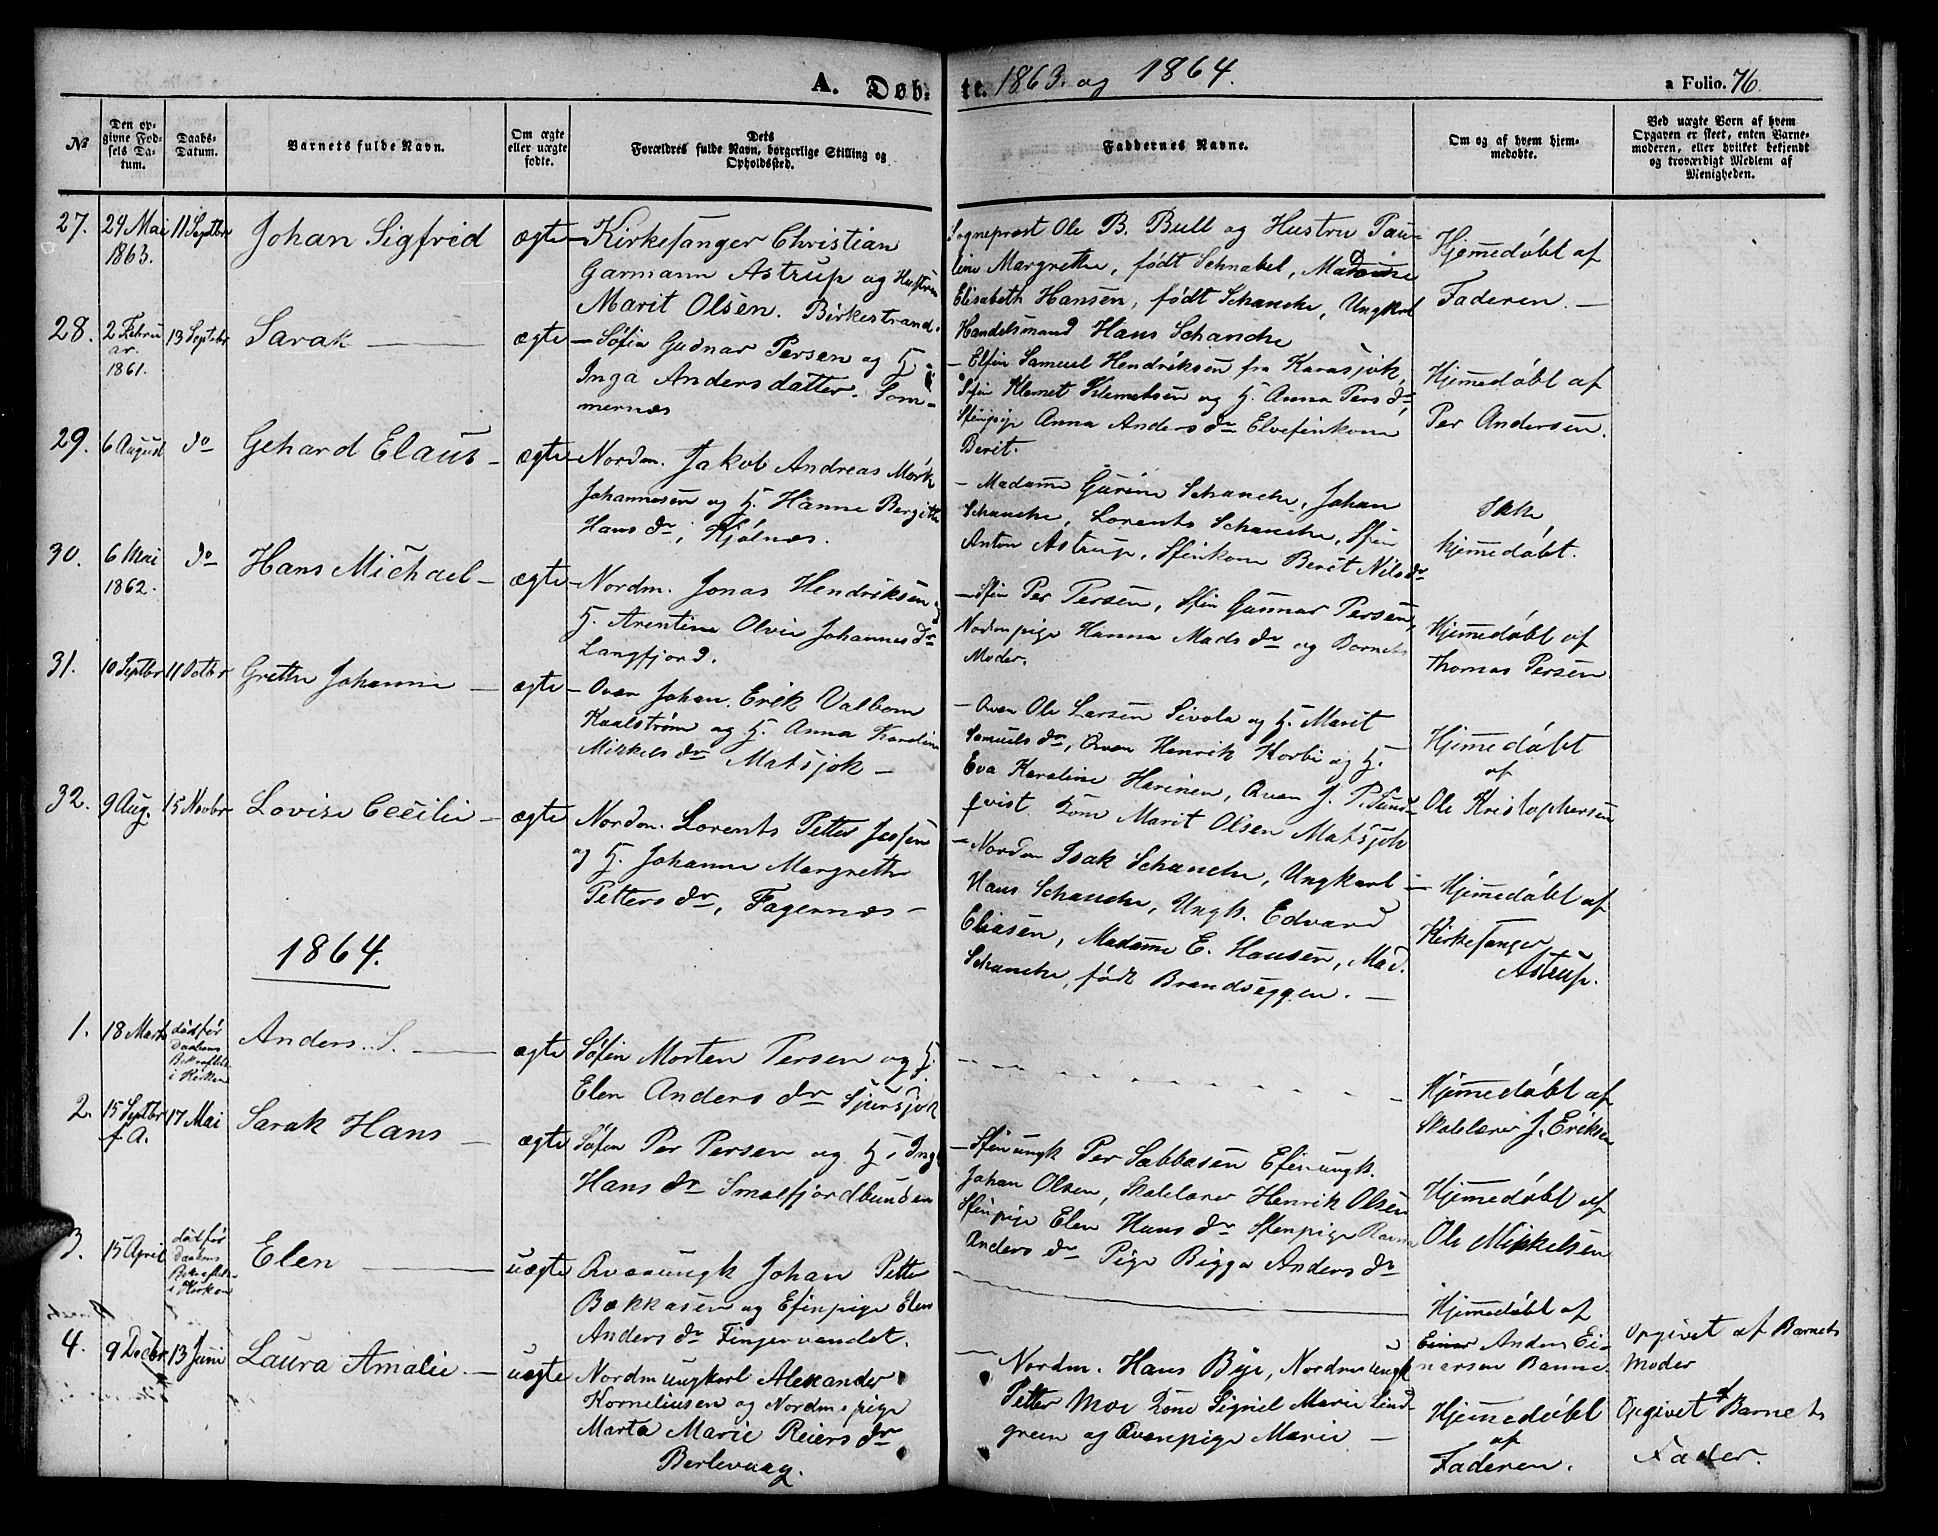 A. Døb-
te. 1863. og 1864.
a Folio. 76.
No
Den op-
givne Fød-
sels Da-
tum.
Daabs-
Datum.
Barnets fulde Navn.
Om ægte
eller uægte
fødte.
Dets
Forældres fulde Navn, borgerlige Stilling og
Opholdssted.
Faddernes Navne.
Om og af hvem hjem-
medøbte.
Ved uægte Børn af hvem
Opgaven er skeet, enten Barne-
moderen, eller hvilket bekjendt
og troværdigt Medlem af
Menigheden.
27.
24 Mai
1863.
11 Septbr
Johan Sigfrid
ægte
Kirkesanger Christian
Garmann Astrup og Hustru
Marit Olsen. Birkestrand.
Sogneprest Ole B. Bull og Hustru Pau-
line Margrethe, født Schnabel, Madame
Elisabeth Hansen, født Schanche, Ungkarl
Handelsmand Hans Schanche
Hjemmedøbt af
Faderen. —
28.
2 Febru
ar.
1861.
13 Septbr
Sarak —
ægte
Søfin Gudnar Persen og H.
Inga Andersdatter. Som-
mernæs
— Elfin Samuel Hendriksen fra Karasjok,
Sfin Klemet Klemetsen og H. Anna Pers dr,
Sfinpige Anna Anders dr Elvefinkone
Berit.
Hjemmedøbt af
Per Andersen.
29.
6 August
do
Gehard Elaus —
ægte
Nordm. Jakob Andreas Mørk
Johannesen og H. Hanne Bergitte
Hans dr, Kjølnæs.
— Madame Gurine Schanche, Johan
Schanche, Lorents Schanche, Sfin
Anton Astrup, Sfinkone Berit Nils dr
Ikke
hjemmedøbt.
30.
6 Mai
1862.
do
Hans Michael —
ægte
Nordm. Jonas Hendriksen og
H. Arentine Olvie Johannes dr
Langfjord.
— Sfin Per Persen, Sfin Gunnar Persen,
Nordm pige Hanna Mads dr og Barnets
Moder.
Hjemmedøbt af
Thomas Persen
31.
10 Septbr
11 Octbr
Grethe Johanne —
ægte
Qvæn Johan Erik Valbom
Kaalstrøm og H. Anna Karoline
Mikkels dr Matsjok —
— Qvæn Ole Larsen Sivola og H. Marit
Samuels dr, Qvæn Henrik Korbi og H.
Eva Karoline Harinen, Qvæn J. P. Sund-
qvist Kone Marit Olsen Matsjok
Hjemmedøbt
af
Ole Kristophersen
32.
9 Aug.
15 Novbr
Lovise Cecilie —
ægte
Nordm. Lorents Petter Jessen
og H. Johanne Margrethe
Petters dr, Fagernæs —
— Nordm Isak Schanche, Ungkarl
Hans Schanche, Ungk. Edvard
Eliasen, Madame E. Hansen, Mad.
Schanche, født Brandseggen. —
— Hjemmedøbt af
Kirkesanger
Astrup.
1864.
1.
18 Marts
død før
Daabens
Bekræftelse
i Kirken
Anders. S. —
ægte
Søfin Morten Persen og H.
Elen Anders dr Sjursjok
Hjemmedøbt af
Skolelærer J. Eriksen
2.
15 Septbr
f. A.
17 Mai
Sarak Hans —
ægte
Søfin Per Persen og H. Inga
Hans dr Smalfjordbunden
— Sfinungk Per Sabbasen Efinungk.
Johan Olsen, Skolelærer Henrik Olsen
Sfinpige Elen Hans dr Sfinpige Ravna
Anders dr Pige Bigga Anders dr
Hjemmedøbt af
Ole Mikkelsen
3.
15 April
død før
Daabens
Bekræftelse
i Kirken
Elen —
uægte
Qvænungk Johan Petter
Bækkasen og Efinpige Elen
Anders dr Fingervandet.
Hjemmedøbt af
Einar Anders Ei-
narsen Banne.
Opgivet af Barnets
Moder
4.
9 Decbr
13 Juni
Laura Amalie. —
uægte
Nordm ungkarl Alexander
Korneliussen og Nordm. pige
Marta Marie Reiers dr
Berlevaag.
— Nordm. Hans Bye, Nordm ungk
Petter Moe Kone Signel Marie Lind-
green og Qvænpige Marie —
Hjemmedøbt
af
Faderen.
Opgivet af Barnets
Fader.